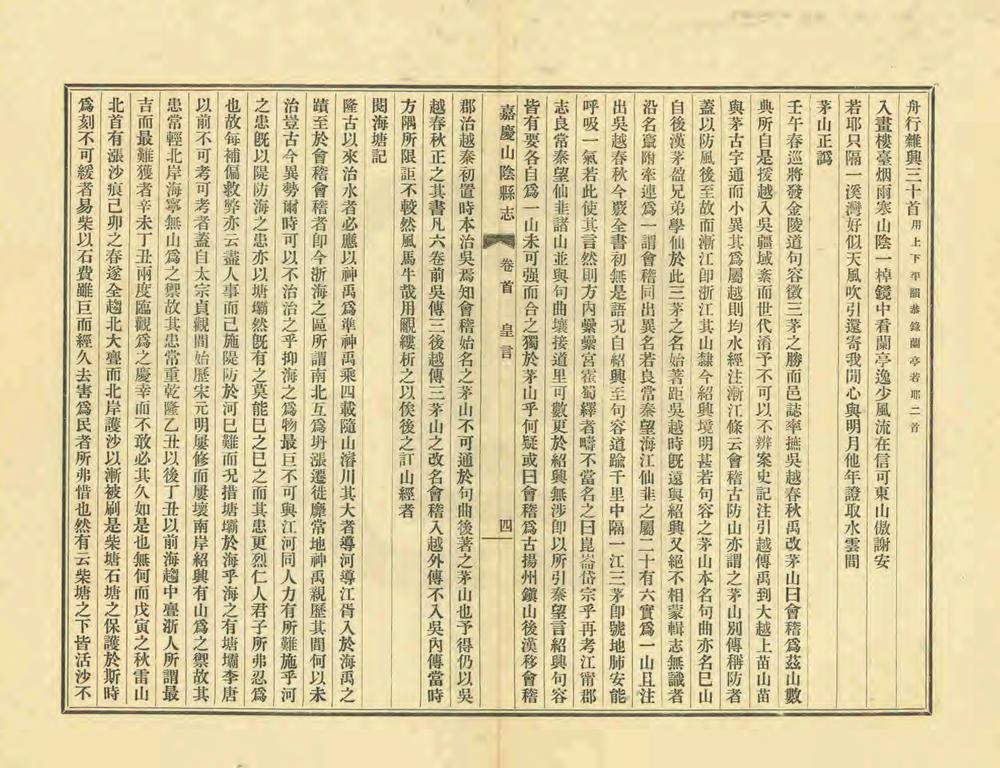 舟行雜興三十首用上下平韻恭錄蘭亭若耶二首
入畫樓臺烟雨寒山陰一棹鏡中看蘭亭逸少風流在信可東山傲謝安
若耶只隔一溪灣好似天風吹引還寄我閒心與明月他年證取水雲間
茅山正譌
壬午春巡將發金陵道句容徵三茅之勝而邑誌率摭吳越春秋禹改茅山曰會稽為茲山數
典所自是援越入吳疆域紊而世代淆予不可以不辨案史記注引越傳禹到大越上苗山苗
與茅古字通而小異其為屬越則均水經注漸江條云會稽古防山亦謂之茅山別傳稱防者
蓋以防風後至故而漸江卽浙江其山隸今紹興境明甚若句容之茅山本名句曲亦名巳山
自後漢茅盈兄弟學仙於此三茅之名始著距吳越時既遠與紹興又絕不相蒙輯志無識者
沿名竄附牽連為一謂會稽同出異名若良常秦望海江仙韭之屬二十有六實為一山且注
出吳越春秋今覈全書初無是語況自紹興至句容道踰千里中隔一江三茅卽號地肺安能
呼吸一氣若此使其言然則方內纍纍宮霍蜀繹者疇不當名之曰崑崙岱宗乎再考江甯郡
志良常秦望仙韭諸山並與句曲壤接道里可數更於紹興無涉卽以所引秦望言紹興句容
皆有要各自為一山未可强而合之獨於茅山乎何疑或曰會稽為古揚州鎭山後漢移會稽
嘉慶山陰縣志 卷首 皇言 四
郡治越秦初置時本治吳焉知會稽始名之茅山不可通於句曲後著之茅山也予得仍以吳
越春秋正之其書凡六卷前吳傳三後越傳三茅山之改名會稽入越外傳不入吳內傳當時
方隅所限詎不較然風馬牛哉用覼縷析之以俟後之訂山經者
閱海塘記
隆古以來治水者必應以神禹為準神禹乘四載隨山濬川其大者導河導江胥入於海禹之
蹟至於會稽會稽者卽今浙海之區所謂南北互為坍漲遷徙靡常地神禹親歷其間何以未
治豈古今異勢爾時可以不治治之乎抑海之為物最巨不可與江河同人力有所難施乎河
之患既以隄防海之患亦以塘壩然既有之莫能已之已之而其患更烈仁人君子所弗忍為
也故每補偏救弊亦云盡人事而已施隄防於河已難而況措塘壩於海乎海之有塘壩李唐
以前不可考可考者蓋自太宗貞觀間始歷宋元明屢修而屢壞南岸紹興有山為之禦故其
患常輕北岸海寧無山為之禦故其患常重乾隆乙丑以後丁丑以前海趨中亹浙人所謂最
吉而最難獲者辛未丁丑兩度臨觀為之慶幸而不敢必其久如是也無何而戊寅之秋雷山
北首有漲沙痕己卯之春遂全趨北大亹而北岸護沙以漸被刷是柴塘石塘之保護於斯時
為刻不可緩者易柴以石費雖巨而經久去害為民者所弗惜也然有云柴塘之下皆活沙不